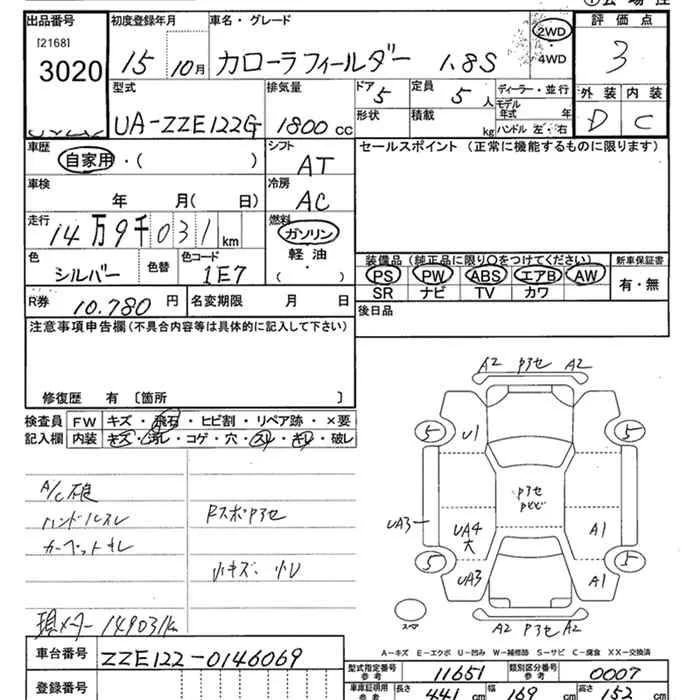 出品番号 初度登録年月 車名・グレード 2WD 評価点
[2168] 15 10月 カローラフィールダー 1.8S ・4WD 3
3020
型式 排気量 ドア 5 定員 5人 ディーラー・並行 外装 内装
UA-ZZE122G 1800cc 形状 積載 kg モデル年式 年 D C
ハンドル 左・右
車歴 自家用・( ) シフト AT セールスポイント (正常に機能するものに限ります)
車検 年 月( 日) 冷房 AC
走行 14万9千031km 燃料 ガソリン
軽油
( )
色 シルバー 色替 色コード 1E7
装備品(純正品に限り○をつけてください) 新車保証書
PS PW ABS エアB AW 有・無
SR ナビ TV カワ
R券 10,780円 名変期限 月 日 後日品
注意事項申告欄(不具合内容等は具体的に記入して下さい)
修復歴 有 〔箇所 〕
検査員 FW キズ・飛石・ヒビ割・リペア跡・×要
記入欄 内装 キズ・汚レ・コゲ・穴・スレ・キレ・破レ
A2 アタセ A2
5 U1 5
ハンドルスレ
カーペットキレ
小キズ、凹
UA3 UA4 大 A1
5 UA3 A1 5
A2 A2
現メーター 149031km
A-キズ E-エクボ U-凹み W-補修跡 S-サビ C-腐食 XX-交換済
車台番号 ZZE122-0146069
型式指定番号 参考 11651 類別区分番号 参考 0007
登録番号
車庫証明用 参考 長さ 441 cm 幅 169 cm 高さ 152 cm